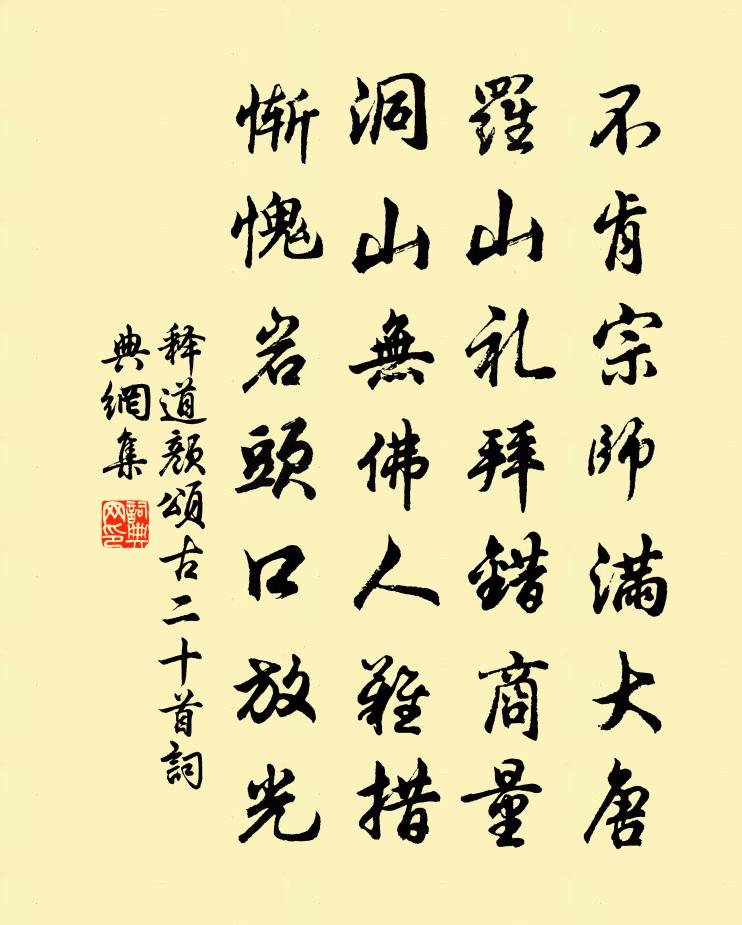 不肯宗師滿大唐
羅山礼拜錯商量
洞山無佛人難措
慚愧岩頭口放光
释道颜頌古二十首詞
典網集
詞典
网印